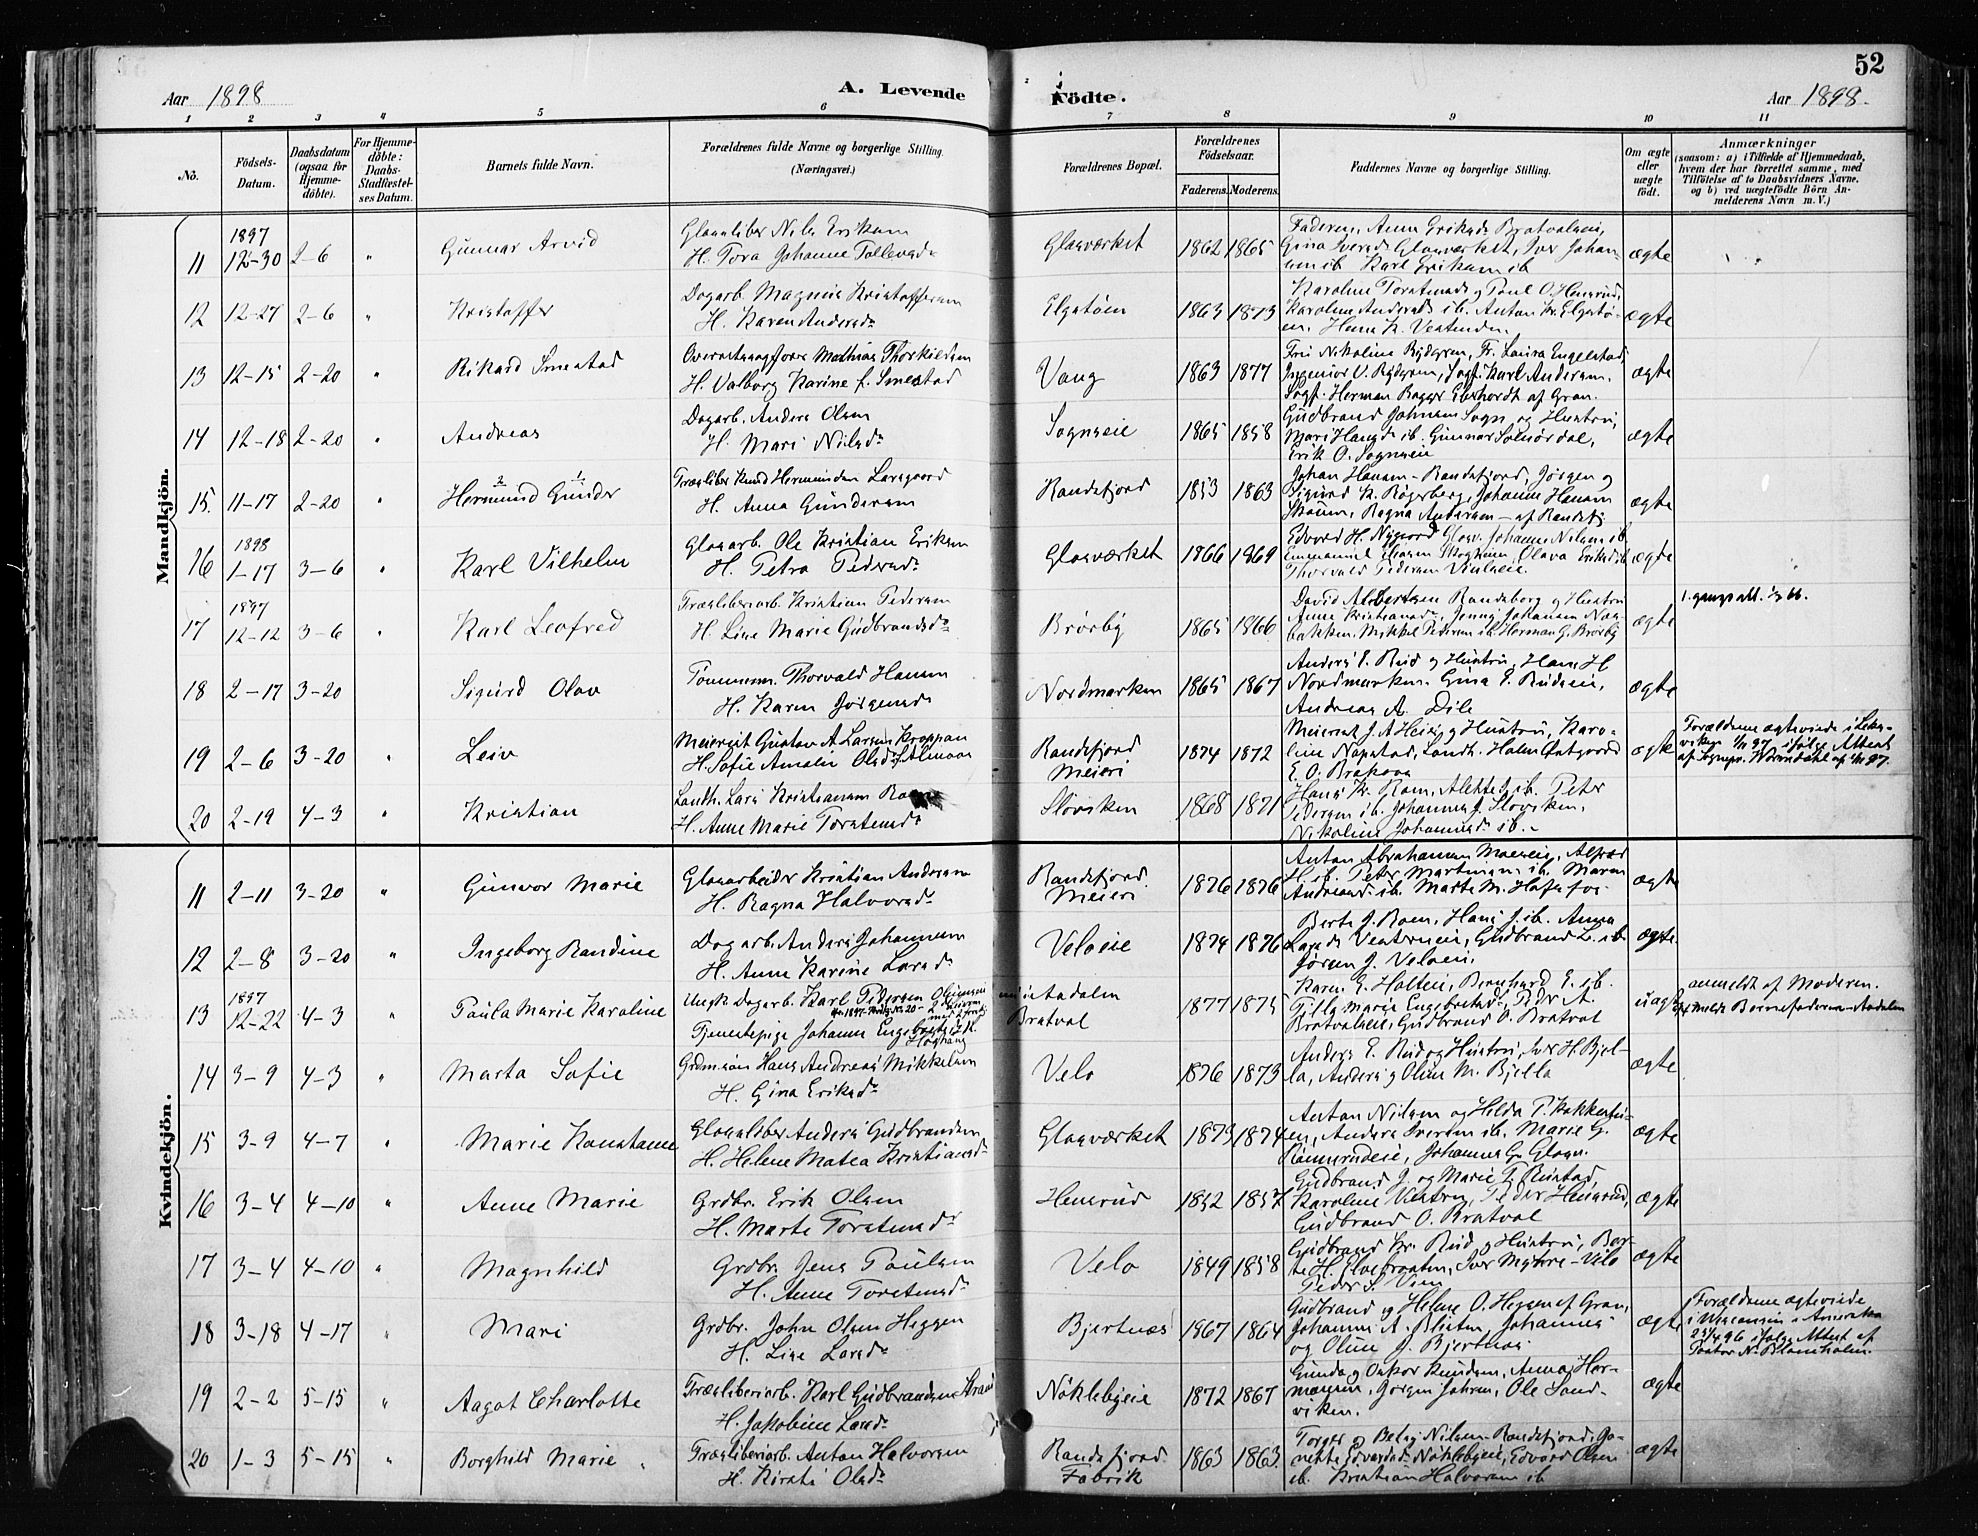 52
Aar 1898
A. Levende
Födte.
Aar 1898.
1 2 3 4 5 6 7 8 9 10 11
No.
Födsels-
Datum.
Daabsdatum
(ogsaa for
Hjemme-
döbte).
For Hjemme-
döbte:
Daabs-
Stadfæstel-
ses Datum.
Barnets fulde Navn.
Forældrenes fulde Navne og borgerlige Stilling.
(Næringsvei.)
Forældrenes Bopæl.
Forældrenes
Födselsaar.
Faderens. Moderens.
Faddernes Navne og borgerlige Stilling.
Om ægte
eller
uægte
födt.
Anmærkninger
(saasom: a) i Tilfælde af Hjemmedaab,
hvem der har forrettet samme, med
Tilföielse af to Daabsvidners Navne,
og b) ved uægtefödte Börn An-
melderens Navn m. V.)
Mandkjön.
1897
11 12-30 2-6 " Gunnar Arvid
Glassliber Nils Eriksen
H. Tora Johanne Tollevsdr
Glasværket 1862 1865
Faderen, Anne Eriksdr Bratvaleie,
Gina Iversdr Glasværket, Iver Johan-
sen ib. Karl Eriksen ib
ægte
12 12-27 2-6 " Kristoffer
Dagarb. Magnus Kristoffersen
H. Karen Andersdr
Elgstøen 1863 1873
Karoline Torstensdr og Paul O. Hensrud,
Karoline Andersdr ib. Anton Kr. Elgstø-
en.
ægte
13 12-15 2-20 " Rikard Smestad
Mathias Thorkildsen
H. Valborg Karine f. Smestad
Vang 1863 1877
Fru Nikoline Rydgren, Fr. Laura Engelstad,
Ingeniør V. Rydgren, Karl Andersen.
Herman Bagger Eberhardt af Gran.
ægte
14 12-18 2-20 " Andreas
Dagarb. Anders Olsen
H. Mari Nilsdr
Sognseie 1865 1858
Gudbrand Johnsen Sogn og Hustru,
Mari Hansdr ib. Gunnar
Erik O. Sognseie
ægte
15. 11-17 2-20 " Hermund Gunder
Træsliber Knud Hermundsen Larsgaard
H. Anna Gundersen
Randsfjord 1853 1863
Johan Hansen - Randsfjord, Jørgen og
Sigurd K. Røgeberg, Johanne Hansen
Ragna Andersen - af Randsfj.
ægte
1898
16 1-17 3-6 " Karl Vilhelm
Glasarb. Ole Kristian Eriksen
H. Petra Pedersdr
Glasværket 1866 1869
Edvard H. Nygaard Glasv. Johanne Nilsen ib.
Emmanuel Olava Eriksdr ib
Thorvald Pedersen
ægte
1897
17 12-12 3-6 " Karl Leofred
Træsliberiarb. Kristian Pedersen
H. Line Marie Gudbrandsdr
Brørby 1865 1866
David Albertsen Randsborg og Hustru
Anne Kristiansdr, Jenny Johansen Nøg-
bakken. Mikkel Pedersen ib. Herman G. Brørby
ægte
18 2-17 3-20 Sigurd Olav
Tømmerm. Thorvald Hansen
H. Karen Jørgensdr
Nordmarken 1865 1867
Anders E. Rud og Hustru, Hans H
Nordmarken. Gina E. Rudseie,
Andreas A. Dile
ægte
19 2-6 3-20 " Leiv
Meierist Gustav A Larsen Kroppan
H. Sofie Amalie Olsdr
Randsfjord
Meieri 1874 1872
Meierist J. A Hei og Hustru, Karo-
line Napstad, Landh. Halvor Østgaard
E. O. Braksva
ægte
Forældrene ægteviede i Leks-
viken 97 ifølge Attest
af Sognepr.
20 2-19 4-3 " Kristian
Landh. Lars Kristiansen
H. Anne Marie Torstensdr
Sløvsken 1868 1871
Hans Kr. Ram, Alette J. ib. Peter
Pedersen ib. Johannes J. Sløvsken,
Nikoline Johannesdr ib.
Kvindekjön.
11 2-11 3-20 " Gunvor Marie
Glasarbeider Kristian Andersen
H. Ragna Halvorsdr
Randsfjord.
Meieri 1876 1876
Anton Abrahamsen Moeseie, Alfred
H. ib. Peter Martinsen ib. Maren
Andersdr ib. Marte M.
ægte
12 2-8 3-20 " Ingeborg Randine
Dagarb. Anders Johannesen
H. Anne Karine Larsdr
Veloeie 1874 1876
Berte J. Ram, Hans J. ib. Anna
Larsdr Vesterneie, Gudbrand L. ib.
Jørgen J. Veloeie.
ægte.
1897
13 12-22 4-3 " Paula Marie Karoline
Ungk. Dagarb. Karl Pedersen
Tjenestepige Johanne Engebretsdr
Aadalen
Bratval 1877 1875
Karen E. Holteie, Bernhard E. ib.
Tilla Marie Engebretsdr, Peder A.
Bratvaleie, Gudbrand O. Bratval
uægte
anmeldt af Moderen.
14 3-9 4-3 " Marta Sofie
Grdmsøn Hans Andreas Mikkelsen
H. Gina Eriksdr
Velo 1876 1873
Anders E. Rud og Hustru, Iver H. Bjel-
la, Anders og Oline M. Bjella
ægte
15 3-9 4-7 " Marie Konstanse
Glassliber Anders Gudbrandsen
H. Helene Matea Kristiansdr
Glasværket 1873 1874
Anton Nilsen og Hilda P. Kokkerstu-
en, Anders Iversen ib. Marie G.
Rønnerudeie, Johannes G. Glasv.
ægte
16 3-4 4-10 " Anne Marie
Grdbr. Erik Olsen
H. Marte Torstensdr
Hensrud 1852 1857
Gudbrand J. og Marie T. Rustad,
Karoline Vestern, Peder Hensrud,
Gudbrand O. Bratval
ægte
17 3-4 4-10 " Magnhild
Grdbr. Jens Paulsen
H. Anne Torstensdr
Velo 1849 1858
Gudbrand Kr. Rud og Hustru, Ber-
te H. Elvebraaten, Iver Myhre-Velo
Peder S. Vien
ægte
18 3-18 4-17 " Mari
Grdbr. John Olsen Heggen
H. Lise Larsdr
Bjertnæs 1867 1864
Gudbrand og Helene O. Heggen af Gran,
Johannes A. Johannes
og Oline J. Bjertnæs
ægte
Forældrene ægteviede
i Wisconsin i Amerika
ifølge Attest af
Pastor N. Blomholm.
19 2-2 5-15 " Aagot Charlotte
Træsliberiarb. Karl Gudbrandsen Strand
H. Jakobine Larsdr
Nøklebyeie 1872 1867
Gunda og Oskar Knudsen, Anna Her-
mansen, Jørgen Johren, Ole Sand-
viken.
ægte
20 1-3 5-15 " Borghild Marie
Træsliberiarb. Anton Halvorsen
H. Kirsti Olsdr
Randsfjord
Fabrik 1863 1863
Torger og Betsy Nilsen-Randsfjord, Ja-
nette Edvardsdr Nøklebyeie, Edvard Olsen
ib. Kristian Halvorsen ib
ægte